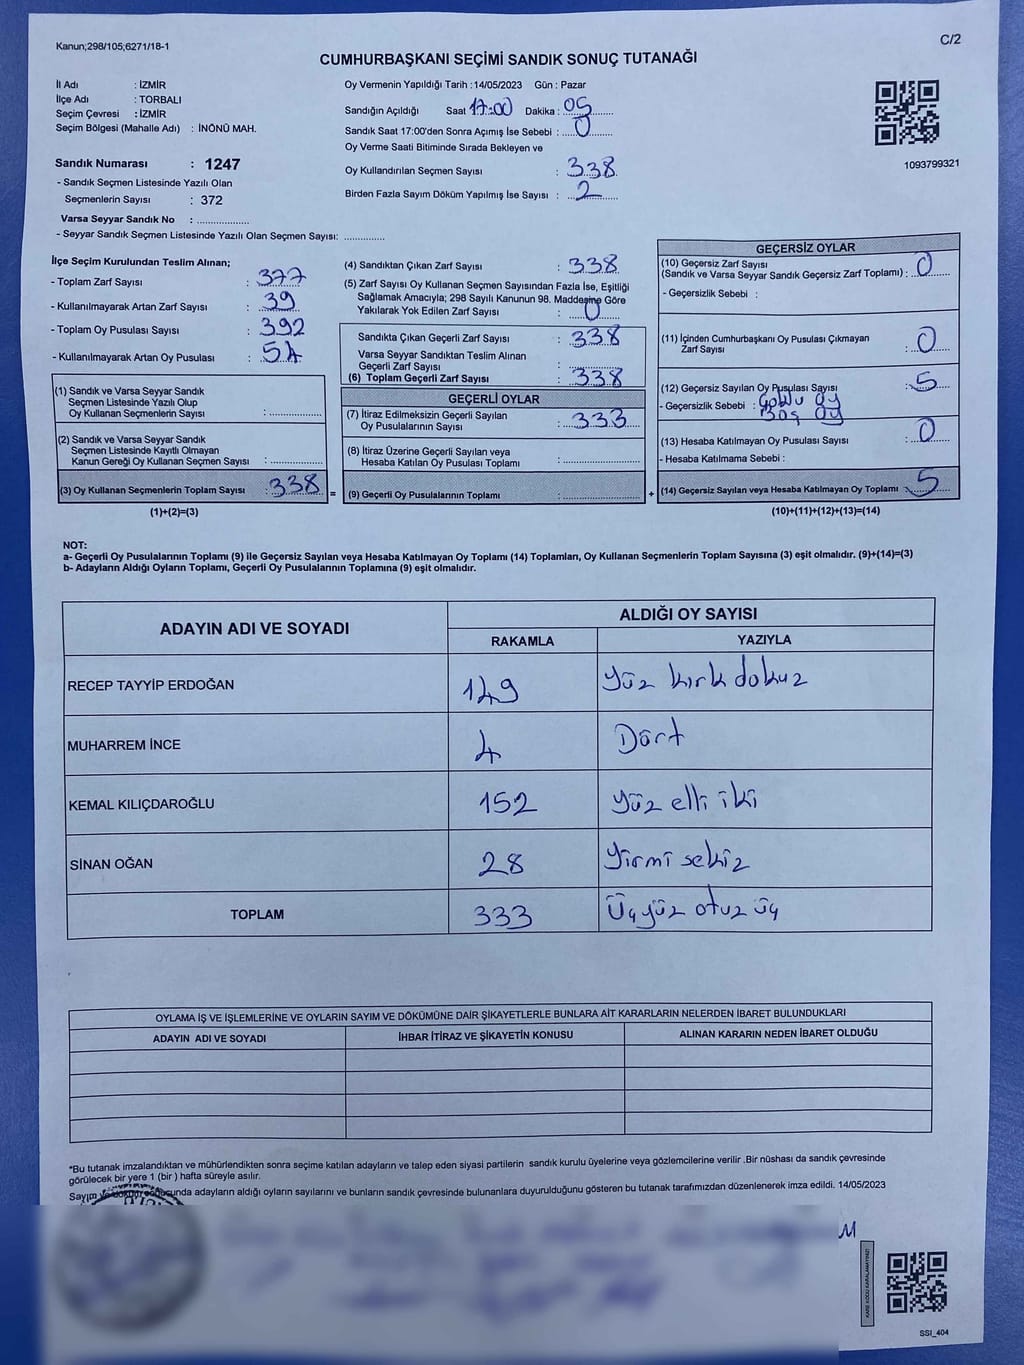 Kanun;298/105;6271/18-1
C/2
CUMHURBAŞKANI SEÇİMİ SANDIK SONUÇ TUTANAĞI
İl Adı : İZMİR
İlçe Adı : TORBALI
Seçim Çevresi : İZMİR
Seçim Bölgesi (Mahalle Adı) : İNÖNÜ MAH.
Sandık Numarası : 1247
- Sandık Seçmen Listesinde Yazılı Olan
Seçmenlerin Sayısı : 372
Varsa Seyyar Sandık No : ................
- Seyyar Sandık Seçmen Listesinde Yazılı Olan Seçmen Sayısı: ............
Oy Vermenin Yapıldığı Tarih : 14/05/2023 Gün : Pazar
Sandığın Açıldığı Saat 17:00 Dakika : 05
Sandık Saat 17:00'den Sonra Açımış İse Sebebi : 0
Oy Verme Saati Bitiminde Sırada Bekleyen ve
Oy Kullandırılan Seçmen Sayısı : 338
Birden Fazla Sayım Döküm Yapılmış İse Sayısı : 2
1093799321
İlçe Seçim Kurulundan Teslim Alınan;
- Toplam Zarf Sayısı : 377
- Kullanılmayarak Artan Zarf Sayısı : 39
- Toplam Oy Pusulası Sayısı : 392
- Kullanılmayarak Artan Oy Pusulası : 54
(1) Sandık ve Varsa Seyyar Sandık
Seçmen Listesinde Yazılı Olup
Oy Kullanan Seçmenlerin Sayısı : ................
(2) Sandık ve Varsa Seyyar Sandık
Seçmen Listesinde Kayıtlı Olmayan
Kanun Gereği Oy Kullanan Seçmen Sayısı : ................
(3) Oy Kullanan Seçmenlerin Toplam Sayısı : 338 =
(1)+(2)=(3)
(4) Sandıktan Çıkan Zarf Sayısı : 338
(5) Zarf Sayısı Oy Kullanan Seçmen Sayısından Fazla İse, Eşitliği
Sağlamak Amacıyla; 298 Sayılı Kanunun 98. Maddesine Göre
Yakılarak Yok Edilen Zarf Sayısı : 0
Sandıkta Çıkan Geçerli Zarf Sayısı : 338
Varsa Seyyar Sandıktan Teslim Alınan
Geçerli Zarf Sayısı : ................
(6) Toplam Geçerli Zarf Sayısı : 338
GEÇERLİ OYLAR
(7) İtiraz Edilmeksizin Geçerli Sayılan
Oy Pusulalarının Sayısı : 333
(8) İtiraz Üzerine Geçerli Sayılan veya
Hesaba Katılan Oy Pusulası Toplamı : ................
(9) Geçerli Oy Pusulalarının Toplamı : ................ +
GEÇERSİZ OYLAR
(10) Geçersiz Zarf Sayısı
(Sandık ve Varsa Seyyar Sandık Geçersiz Zarf Toplamı) : 0
- Geçersizlik Sebebi :
(11) İçinden Cumhurbaşkanı Oy Pusulası Çıkmayan
Zarf Sayısı : 0
(12) Geçersiz Sayılan Oy Pusulası Sayısı : 5
- Geçersizlik Sebebi : Çoklu oy
Boş oy
(13) Hesaba Katılmayan Oy Pusulası Sayısı : 0
- Hesaba Katılmama Sebebi :
(14) Geçersiz Sayılan veya Hesaba Katılmayan Oy Toplamı : 5
(10)+(11)+(12)+(13)=(14)
NOT:
a- Geçerli Oy Pusulalarının Toplamı (9) ile Geçersiz Sayılan veya Hesaba Katılmayan Oy Toplamı (14) Toplamları, Oy Kullanan Seçmenlerin Toplam Sayısına (3) eşit olmalıdır. (9)+(14)=(3)
b- Adayların Aldığı Oyların Toplamı, Geçerli Oy Pusulalarının Toplamına (9) eşit olmalıdır.
ADAYIN ADI VE SOYADI
ALDIĞI OY SAYISI
RAKAMLA YAZIYLA
RECEP TAYYİP ERDOĞAN 149 Yüz kırk dokuz
MUHARREM İNCE 4 Dört
KEMAL KILIÇDAROĞLU 152 Yüz elli iki
SİNAN OĞAN 28 Yirmi sekiz
TOPLAM 333 Üçyüz otuz üç
OYLAMA İŞ VE İŞLEMLERİNE VE OYLARIN SAYIM VE DÖKÜMÜNE DAİR ŞİKAYETLERLE BUNLARA AİT KARARLARIN NELERDEN İBARET BULUNDUKLARI
ADAYIN ADI VE SOYADI İHBAR İTİRAZ VE ŞİKAYETİN KONUSU ALINAN KARARIN NEDEN İBARET OLDUĞU
*Bu tutanak imzalandıktan ve mühürlendikten sonra seçime katılan adayların ve talep eden siyasi partilerin sandık kurulu üyelerine veya gözlemcilerine verilir .Bir nüshası da sandık çevresinde
görülecek bir yere 1 (bir ) hafta süreyle asılır.
Sayım ve döküm sonucunda adayların aldığı oyların sayılarını ve bunların sandık çevresinde bulunanlara duyurulduğunu gösteren bu tutanak tarafımızdan düzenlenerek imza edildi. 14/05/2023
SSI_404